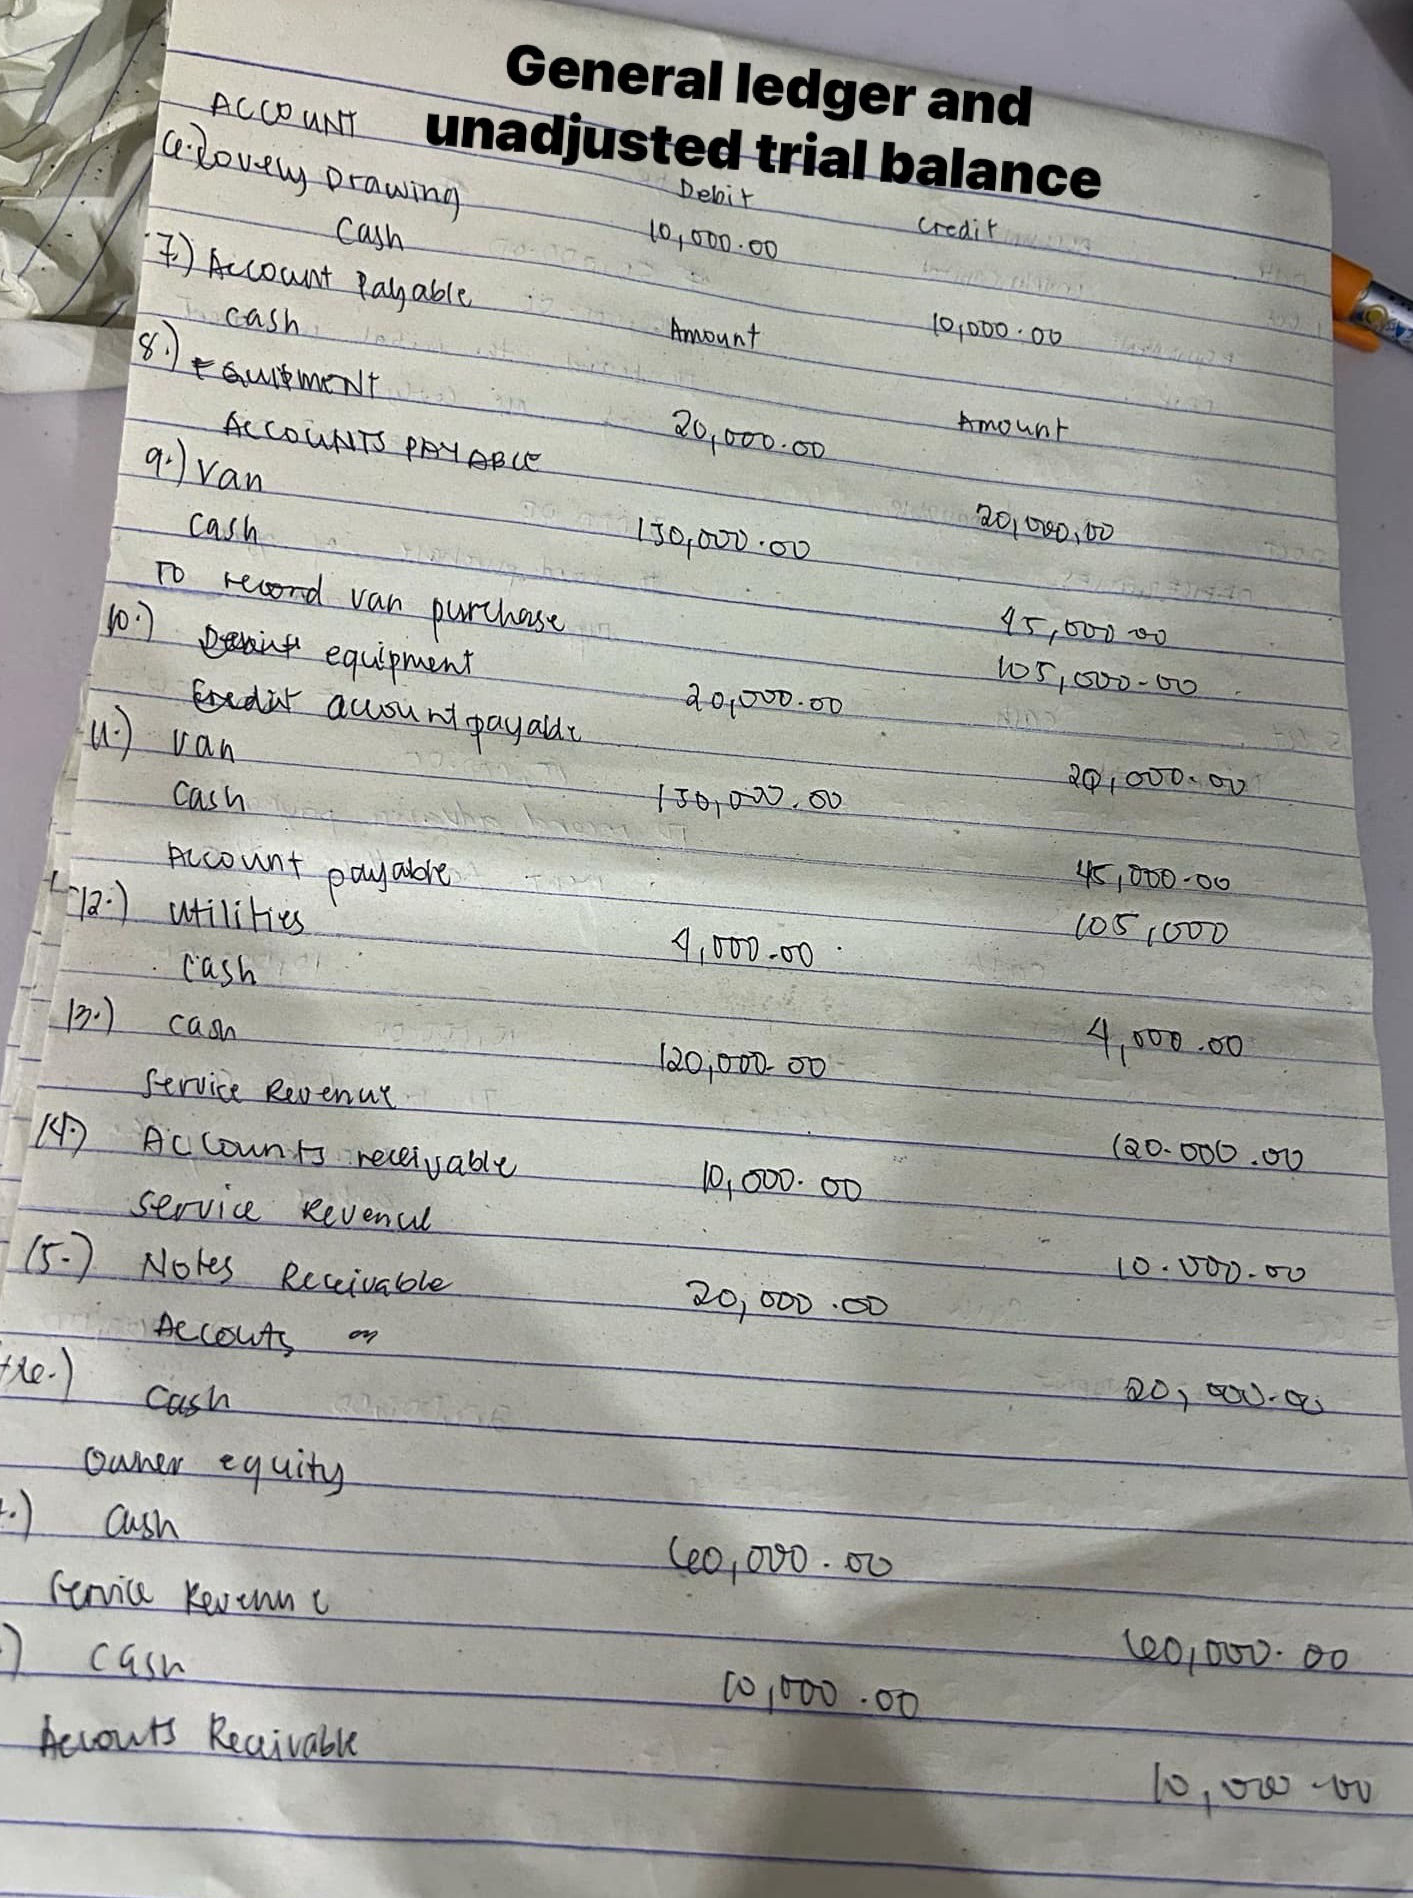 General ledger and
unadjusted trial balance
ACCOUNT Debit Credit
6.) Lovely Drawing 10,000.00
Cash 10,000.00
7.) Account Payable Amount
cash Amount
8.) EQUIPMENT 20,000.00
ACCOUNTS PAYABLE 20,000.00
9.) Van 150,000.00
cash 45,000.00
105,000.00
To record van purchase
10.) equipment 20,000.00
Credit account payable 20,000.00
11.) Van 150,000.00
Cash 45,000.00
Account payable 105,000
12.) utilities 4,000.00
cash 4,000.00
13.) cash 120,000.00
Service Revenue 120.000.00
14.) Accounts receivable 10,000.00
Service Revenue 10.000.00
15.) Notes Receivable 20,000.00
Accouts 20,000.00
16.) Cash
Owner equity
.) Cash 60,000.00
Service Revenue 60,000.00
) Cash 10,000.00
Accouts Receivable 10,000.00